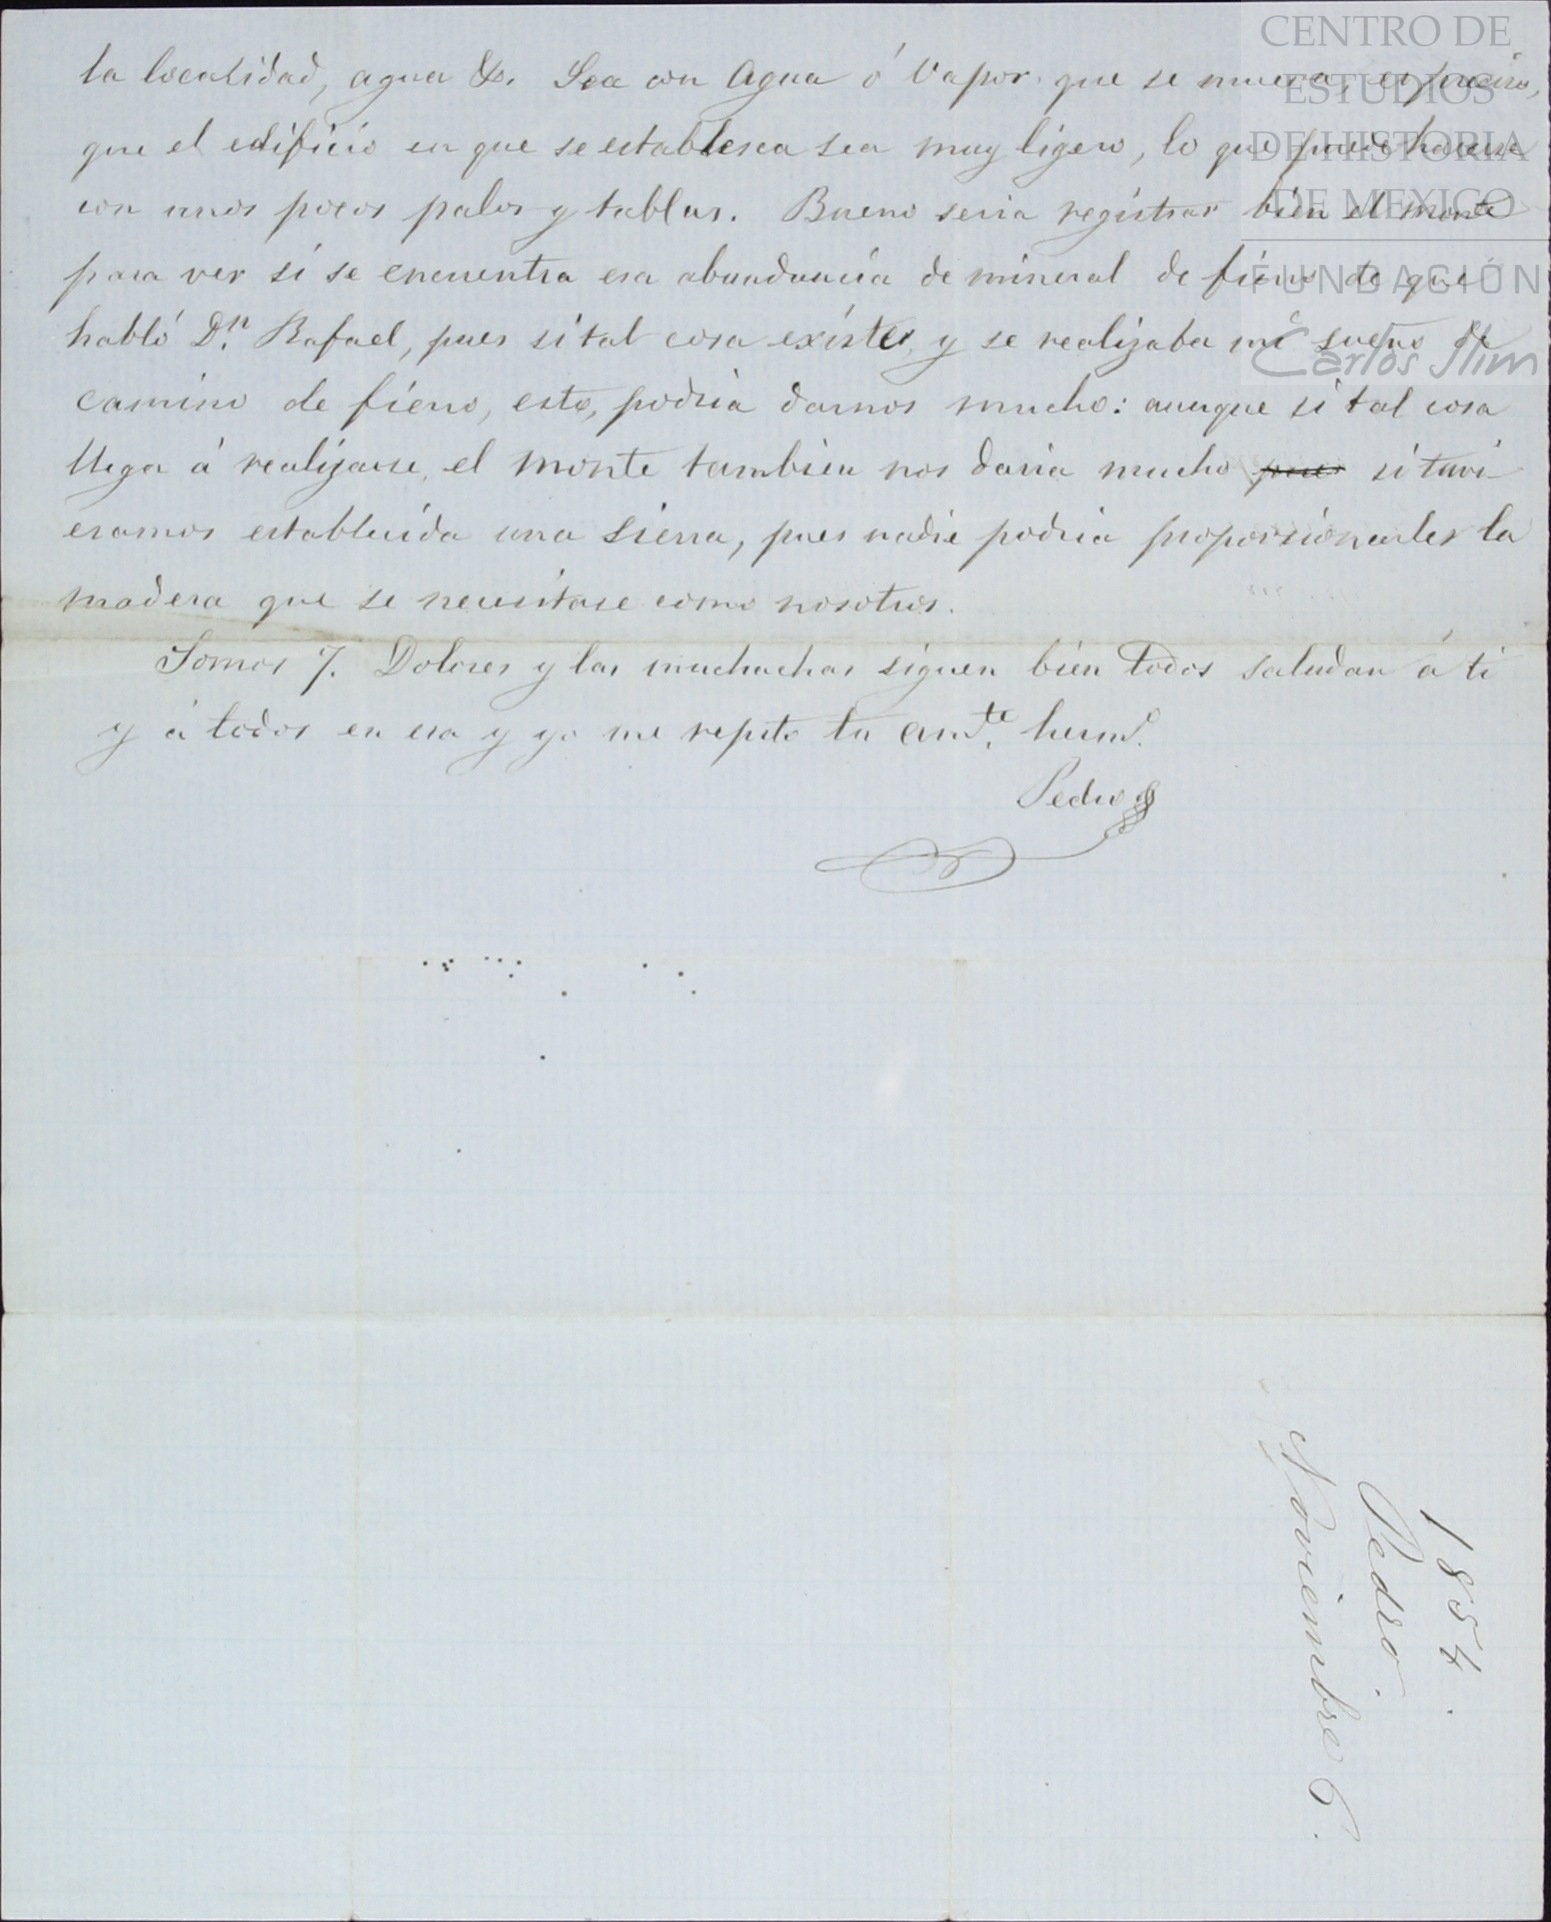 la localidad, agua &a. Sea con Agua ó Vapor que se mueva, es preciso,
que el edificio en que se establesca sea muy ligero, lo que puede hacerse
con unos pocos palos y tablas. Bueno seria registrar bien el monte
para ver si se encuentra esa abundancia de mineral de fierro de que
habló Dn. Rafael, pues si tal cosa existe, y se realizaba mi sueño de
camino de fierro, esto, podria darnos mucho: aunque si tal cosa
llega á realizarse, el monte tambien nos daria mucho pues si tuvi-
eramos establecida una sierra, pues nadie podria proporcionarles la
madera que se necesitase como nosotros.
Somos 7. Dolores y las muchachas siguen bien todos saludan á ti
y á todos en esa y yo me repito tu amte. hermo.
Pedro
1854.
Pedro.
Noviembre 6.
CENTRO DE
ESTUDIOS
DE HISTORIA
DE MEXICO
FUNDACIÓN
Carlos Slim